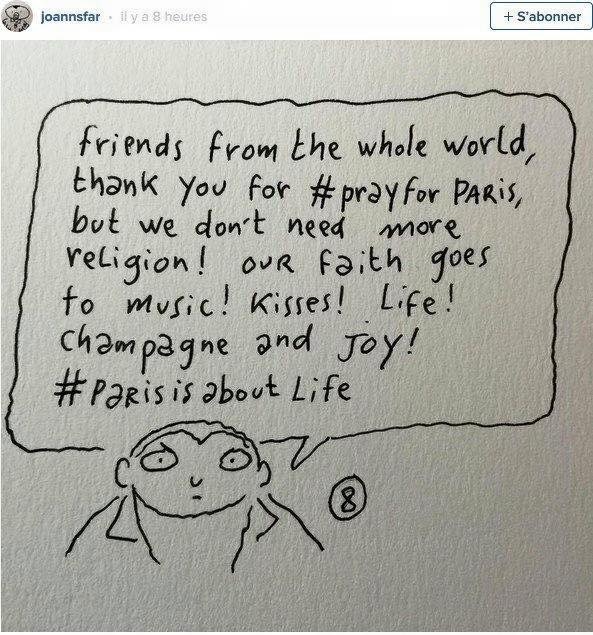 joannsfar · il y a 8 heures
+ S'abonner
friends from the whole world,
thank you for #prayfor PARis,
but we don't need more
religion! our faith goes
to music! Kisses! Life!
Champagne and Joy!
#Paris is about Life
8